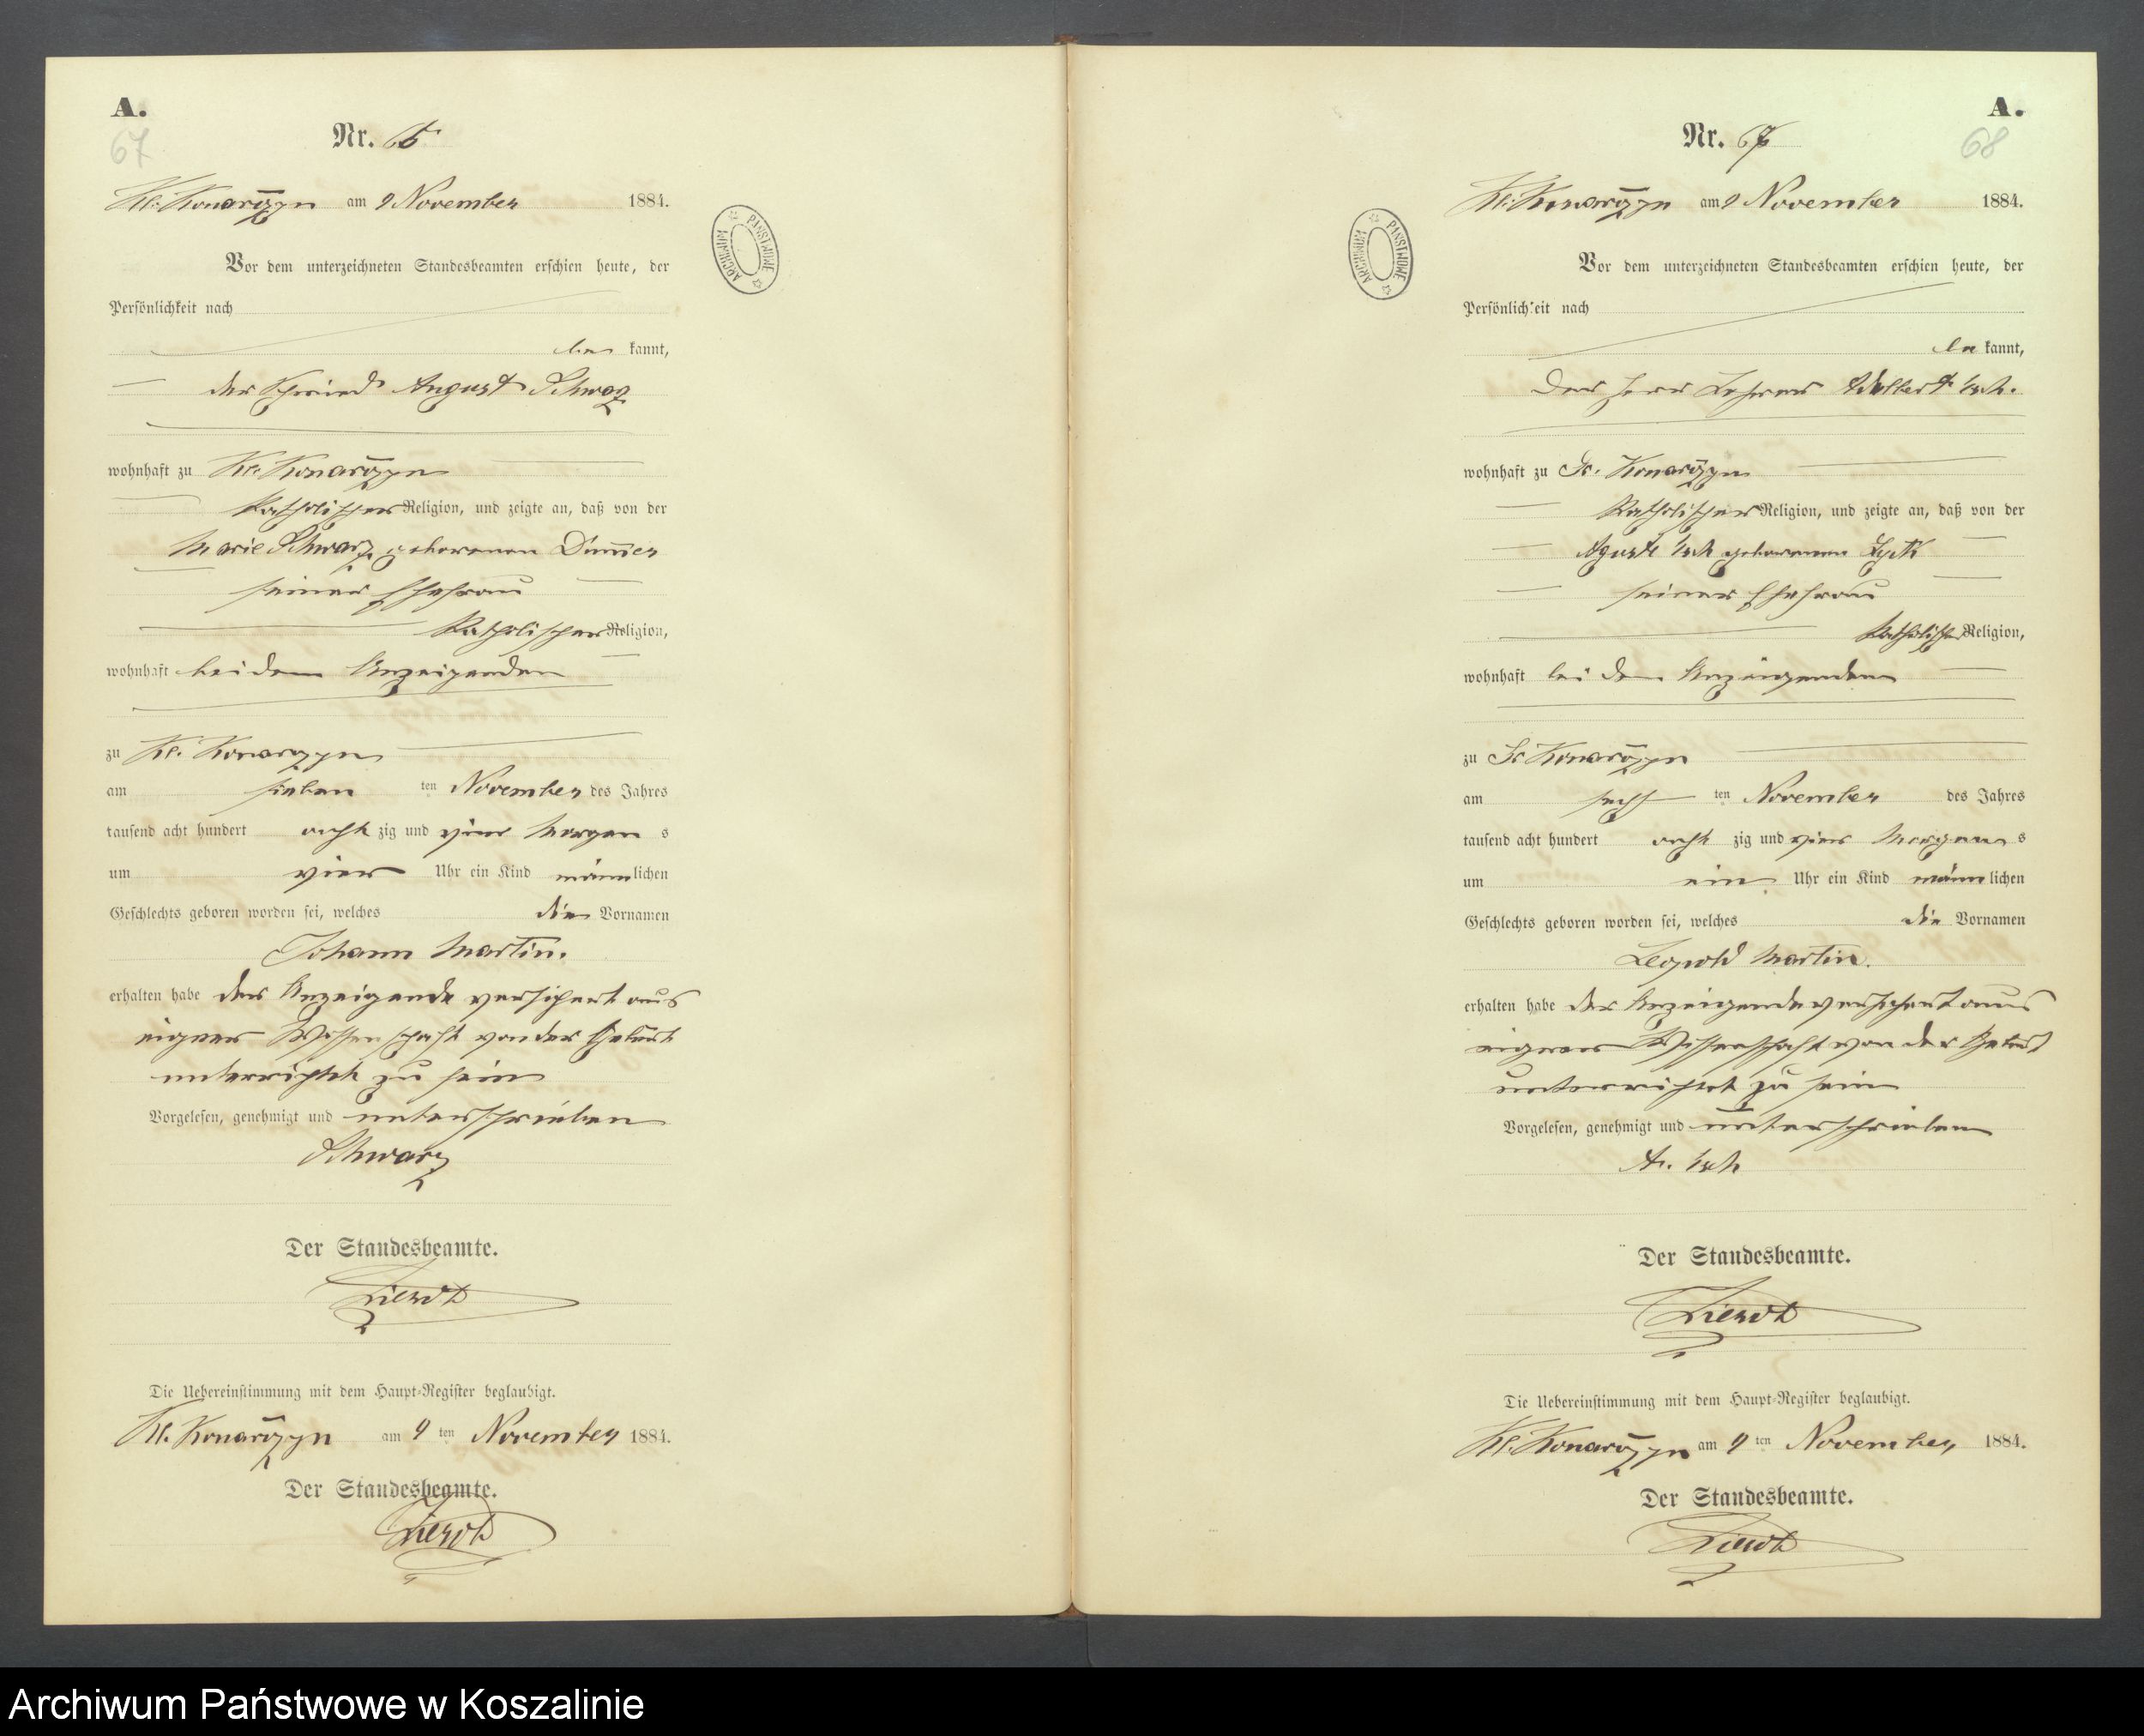 A.
67
Nr. 66
Kl. Konarczyn am 9 November 1884.
Vor dem unterzeichneten Standesbeamten erschien heute, der
Persönlichkeit nach
be kannt,
der August Schwarz
wohnhaft zu Kl. Konarczyn
katholischer Religion, und zeigte an, daß von der
Marie Schwarz geborenen
seiner Ehefrau
katholischer Religion,
wohnhaft bei dem Anzeigenden
zu Kl. Konarczyn
am sieben ten November des Jahres
tausend acht hundert acht zig und vier Morgen s
um vier Uhr ein Kind männlichen
Geschlechts geboren worden sei, welches die Vornamen
Johann Martin.
erhalten habe der Anzeigende versichert aus
eigner Wissenschaft von der Geburt
unterrichtet zu sein
Vorgelesen, genehmigt und unterschrieben
Schwarz
Der Standesbeamte.
Die Uebereinstimmung mit dem Haupt-Register beglaubigt.
Kl. Konarczyn am 9 ten November 1884.
Der Standesbeamte.
ARCHIWUM PAŃSTWOWE
A.
68
Nr. 67
Kl. Konarczyn am 9 November 1884.
Vor dem unterzeichneten Standesbeamten erschien heute, der
Persönlichkeit nach
be kannt,
Der Herr Lehrer
wohnhaft zu Gr. Konarczyn
katholischer Religion, und zeigte an, daß von der
geborenen
seiner Ehefrau
katholischer Religion,
wohnhaft bei dem Anzeigenden
zu Gr. Konarczyn
am sechs ten November des Jahres
tausend acht hundert acht zig und vier Morgen s
um ein Uhr ein Kind männlichen
Geschlechts geboren worden sei, welches die Vornamen
Leopold Martin.
erhalten habe der Anzeigende versichert aus
eigner Wissenschaft von der Geburt
unterrichtet zu sein
Vorgelesen, genehmigt und unterschrieben
Der Standesbeamte.
Die Uebereinstimmung mit dem Haupt-Register beglaubigt.
Kl. Konarczyn am 9 ten November 1884.
Der Standesbeamte.
ARCHIWUM PAŃSTWOWE
Archiwum Państwowe w Koszalinie